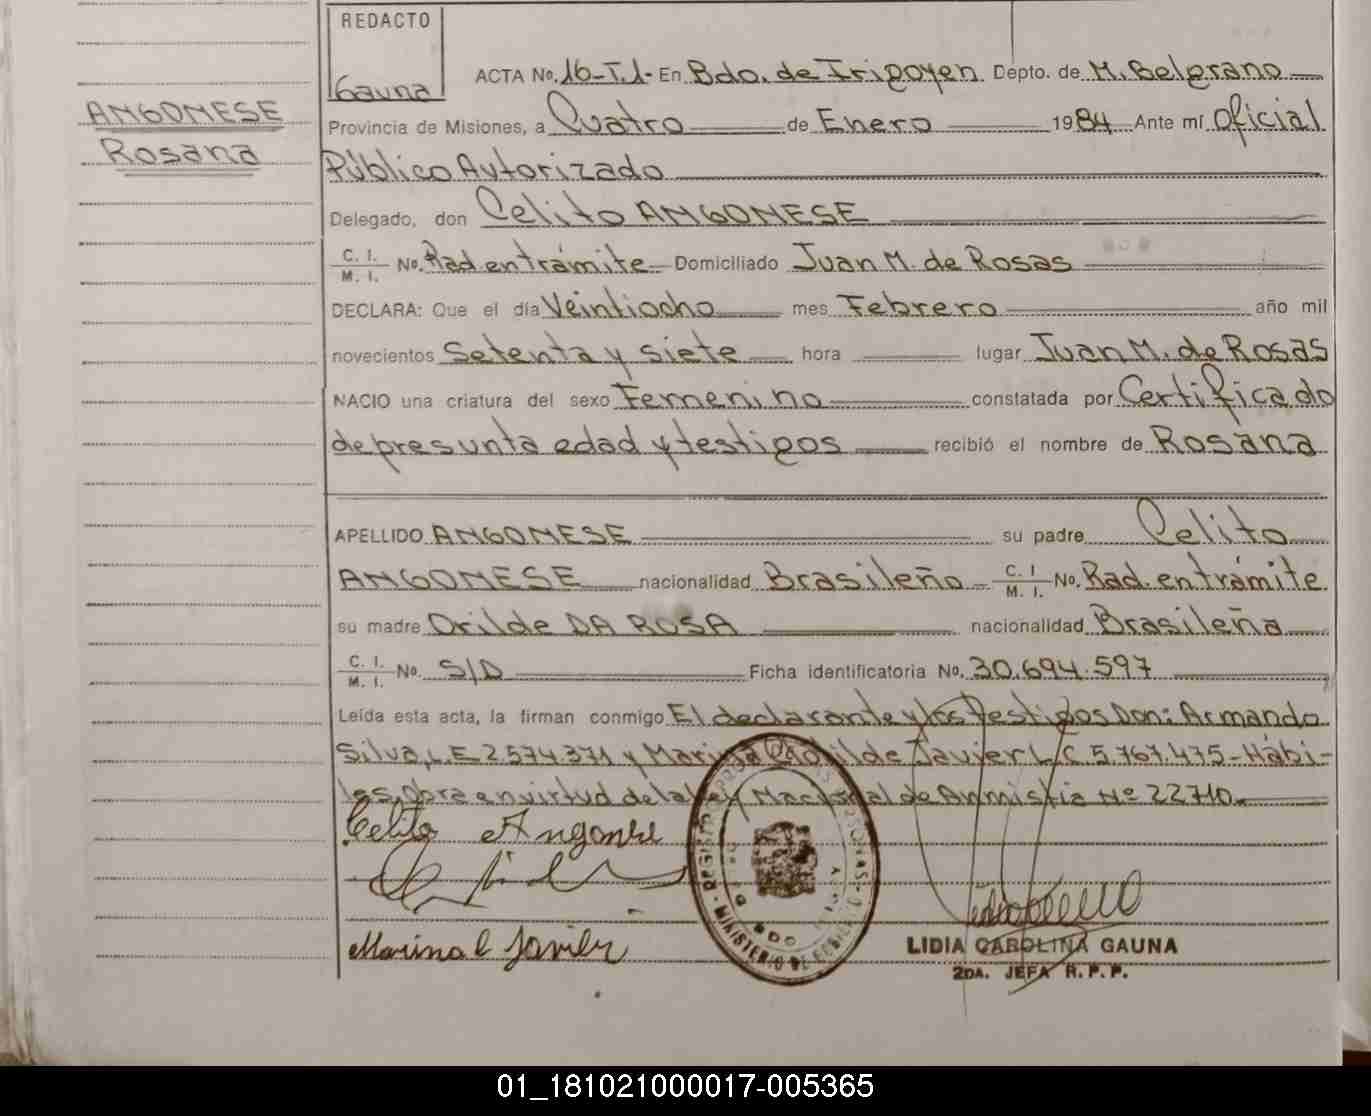 REDACTO
Gauna
ANGONESE
Rosana
ACTA No. 16-T.1- En Bdo. de Irigoyen Depto. de M. Belgrano
Provincia de Misiones, a Cuatro de Enero 1984 Ante mí Oficial
Público Autorizado
Delegado, don Celito ANGONESE
C. I. M. I. No. Rad. en trámite Domiciliado Juan M. de Rosas
DECLARA: Que el día Veintiocho mes Febrero año mil
novecientos Setenta y siete hora lugar Juan M. de Rosas
NACIO una criatura del sexo Femenino constatada por Certificado
de presunta edad y testigos recibió el nombre de Rosana
APELLIDO ANGONESE su padre Celito
ANGONESE nacionalidad Brasileño C. I M. I. No. Rad. en trámite
su madre Orilde DA ROSA nacionalidad Brasileña
C. I. M. I. No. S/D Ficha identificatoria No. 30.694.597
Leída esta acta, la firman conmigo El declarante y los testigos Don: Armando
Silva, L.E. 2.574.371 y Javier L.C. 5.767.475 - Hábi-
les, obra en virtud de la ley Nacional de Amnistía Nº 22710.
Celito Angonese
Marina C Javier
LIDIA CAROLINA GAUNA
2DA. JEFA R. P. P.
01_181021000017-005365